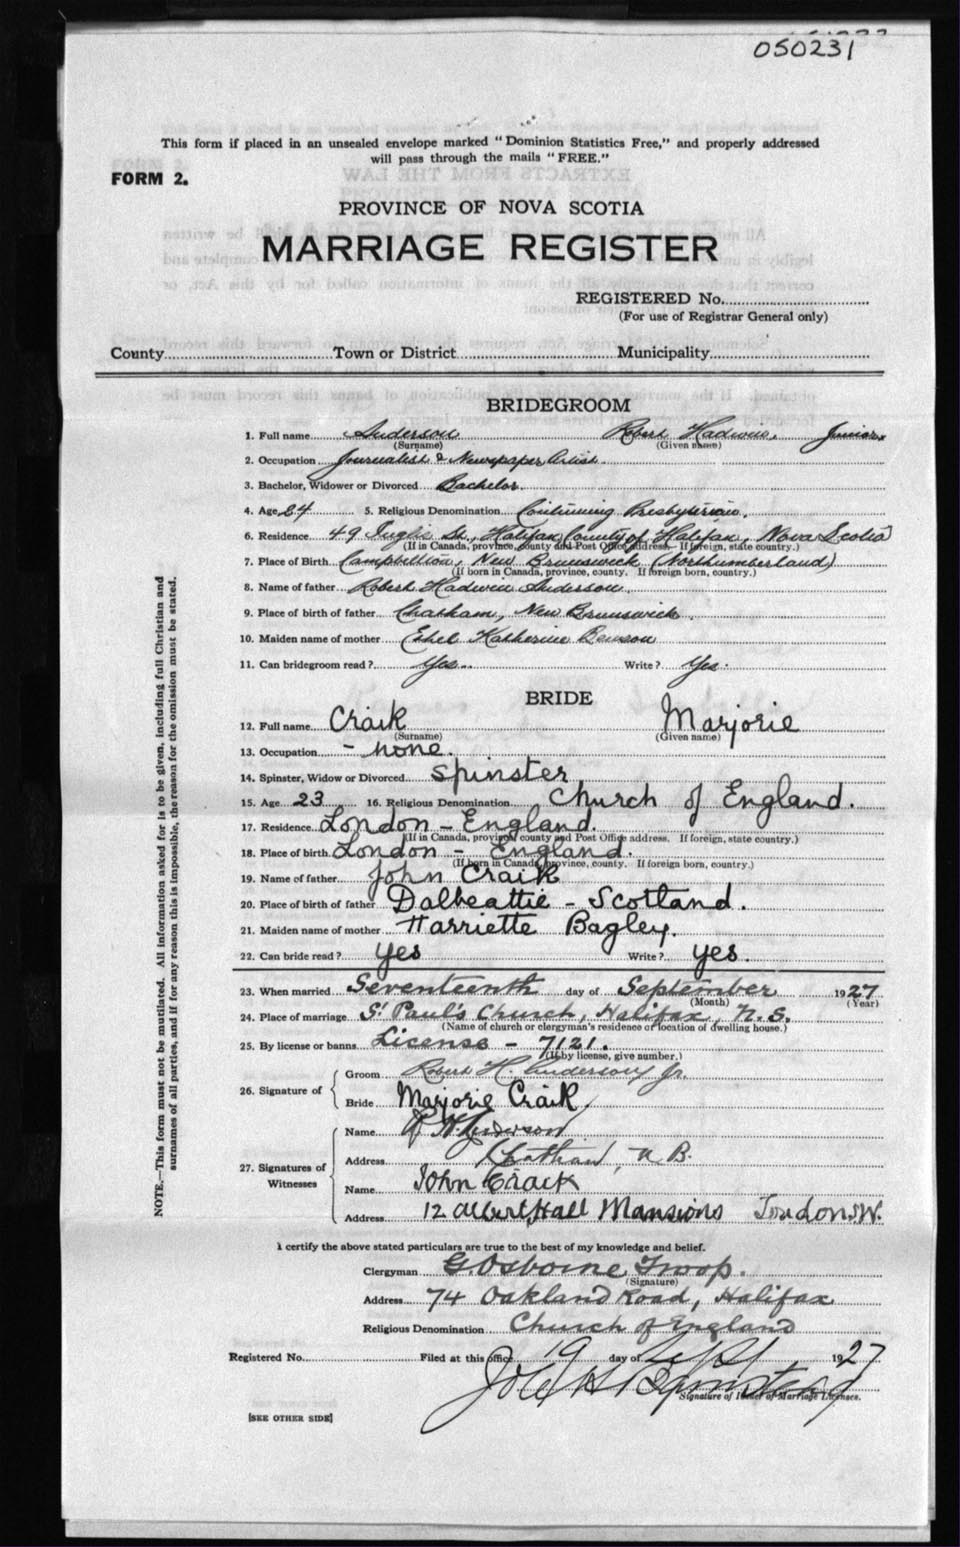 050231
This form if placed in an unsealed envelope marked "Dominion Statistics Free," and properly addressed
will pass through the mails "FREE."
FORM 2.
PROVINCE OF NOVA SCOTIA
MARRIAGE REGISTER
REGISTERED No.
(For use of Registrar General only)
County Town or District Municipality
BRIDEGROOM
1. Full name Anderson Robert Hadwin, Junior
(Surname) (Given name)
2. Occupation Journalist & Newspaper Artist.
3. Bachelor, Widower or Divorced Bachelor.
4. Age 24 5. Religious Denomination Continuing Presbyterian.
6. Residence 49 Inglis St., Halifax, County of Halifax, Nova Scotia
(If in Canada, province, county and Post Office address. If foreign, state country.)
7. Place of Birth Campbellton, New Brunswick (Northumberland)
(If born in Canada, province, county. If foreign born, country.)
8. Name of father Robert Hadwin Anderson.
9. Place of birth of father Chatham, New Brunswick.
10. Maiden name of mother Ethel Katherine Benson
11. Can bridegroom read? Yes. Write? Yes.
BRIDE
12. Full name Craik Marjorie
(Surname) (Given name)
13. Occupation - none.
14. Spinster, Widow or Divorced Spinster
15. Age 23 16. Religious Denomination Church of England.
17. Residence London - England.
(If in Canada, province, county and Post Office address. If foreign, state country.)
18. Place of birth London - England.
(If born in Canada, province, county. If foreign born, country.)
19. Name of father John Craik
20. Place of birth of father Dalbeattie - Scotland.
21. Maiden name of mother Harriette Bagley.
22. Can bride read? yes Write? yes.
23. When married Seventeenth day of September 1927
(Month) (Year)
24. Place of marriage St Paul's Church, Halifax, N.S.
(Name of church or clergyman's residence or location of dwelling house.)
25. By license or banns License - 7121.
(If by license, give number.)
26. Signature of Groom Robert H. Anderson Jr.
Bride Marjorie Craik.
27. Signatures of Witnesses Name R H Anderson
Address Chatham, N.B.
Name John Craik
Address 12 Albert Hall Mansions London S.W.
I certify the above stated particulars are true to the best of my knowledge and belief.
Clergyman G. Osborne Troop.
(Signature)
Address 74 Oakland Road, Halifax
Religious Denomination Church of England
Registered No. Filed at this office 19 day of Sept 1927
Signature of Issuer of Marriage Licenses.
[SEE OTHER SIDE]
NOTE.—This form must not be mutilated. All information asked for is to be given, including full Christian and
surnames of all parties, and if for any reason this is impossible, the reason for the omission must be stated.